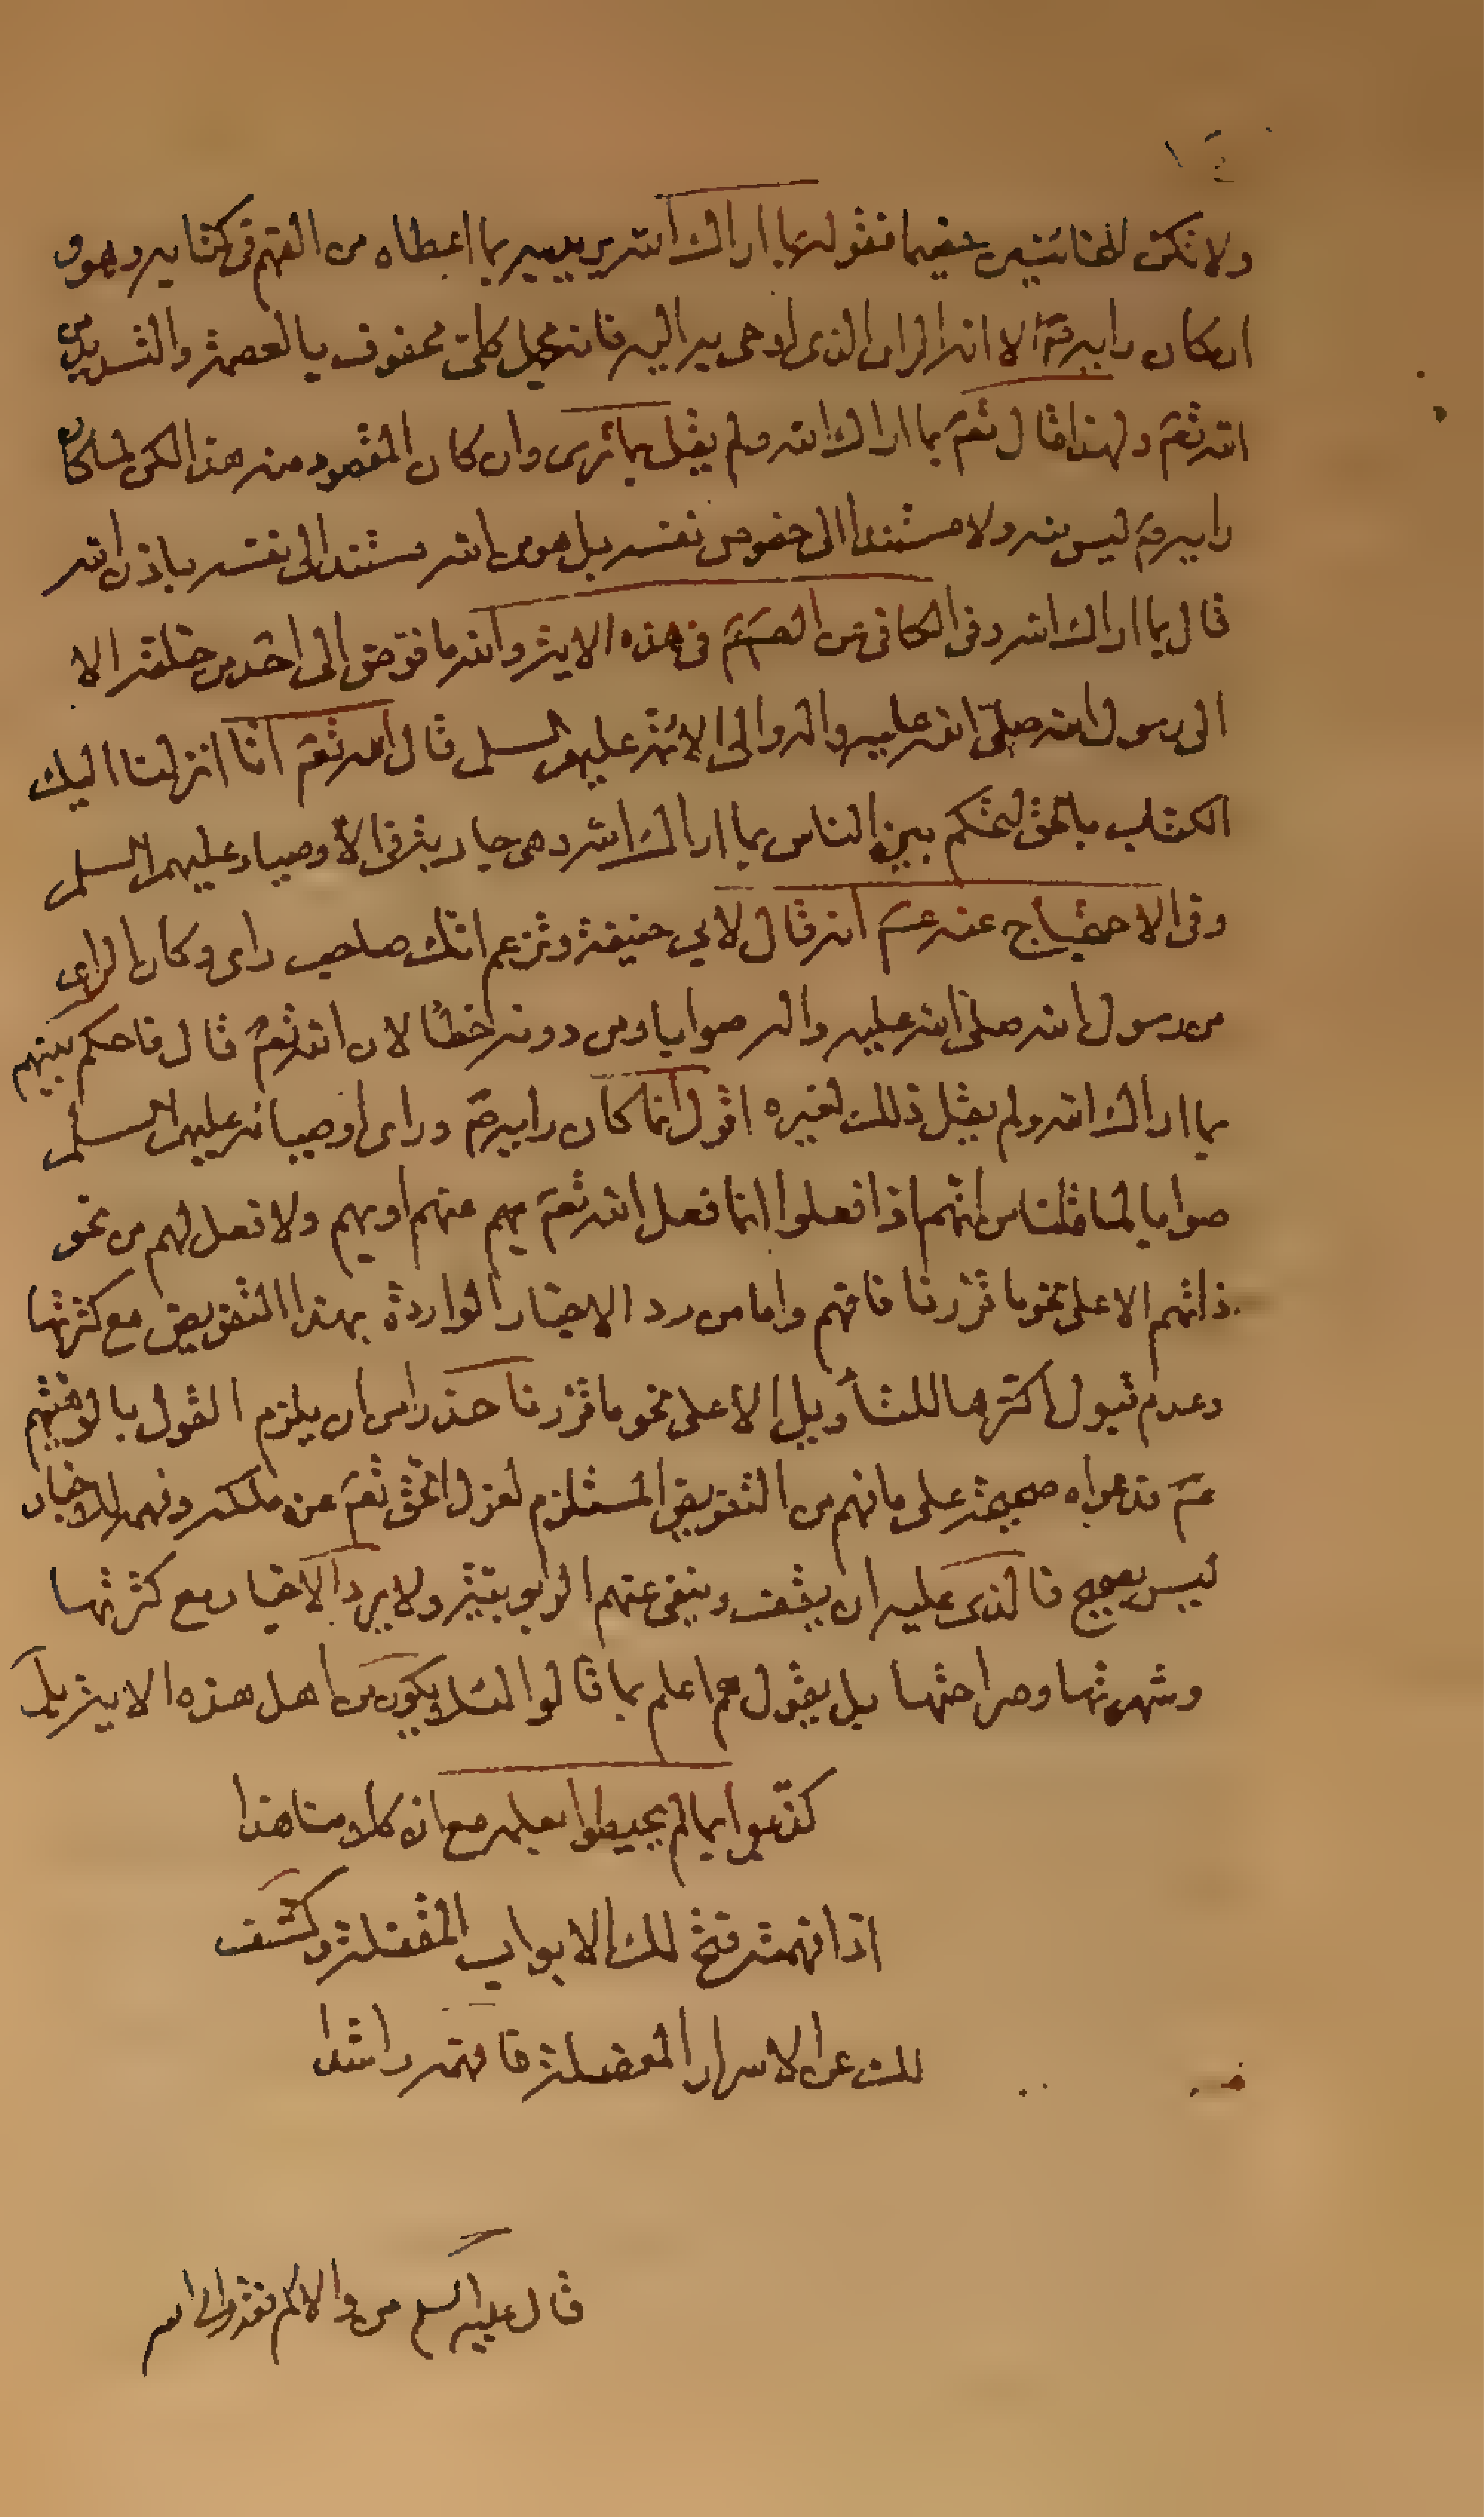 ولا تكن للخائنين خصيما فقوله بما اراك الله يريد به بما اعطاه من الفهم في كتابه وهو و
ان كان رايه صٓ الا انه الراى الذى اوحى به اليه فانه محل كلى محفوف بالعصمة والتسديد من
الله تعٓ ولهذا قال تعٓ بما اراك الله ولم يقل بما ترى وان كان المقصود منه هذا لكن لما كان
رايه صٓ ليس منه ولا مستندا الى خصوص نفسه بل هو من الله مستند الى نفسه باذن الله
قال بما اراك الله وفى الكافى عن الصٓ عٓ فى هذه الاية والله ما فوض الى احد من خلقه الا
الى رسول الله صلى الله عليه واله والى الائمة عليهم السلم قال الله تعٓ انا انزلنا اليك
الكتاب بالحق لتحكم بين الناس بما اراك الله وهى جارية فى الأوصياء عليهم السلم
وفى الاحتجاج عنه عٓ انه قال لابي حنيفة وتزعم انك صاحب راى وكان الراى
من رسول الله صلى الله عليه واله صوابا ومن دونه خطأ لان الله تعٓ قال فاحكم بينهم
بما اراك الله ولم يقل ذلك لغيره اقول انما كان رايه صٓ وراى اوصيائه عليهم السلم
صوابا لما قلنا من انهم اذا فعلوا انما فعل الله تعٓ بهم عنهم او بهم ولا فعل لهم من نحو
ذاتهم الا على نحو ما قررنا فافهم واما من رد الاخبار الواردة بهذا التفويض مع كثرتها
وعدم قبول اكثرها للتأويل الا على نحو ما قررنا حذرا من ان يلزم القول بالوهيتهم
عٓ فدعواه صحيحة على ما فهم من التفويض المستلزم لعزل الحق تعٓ عن ملكه وفهمه للاخبار
ليس بصحيح فالذى عليه ان يقف وينفى عنهم الربوبية ولا يرد الاخبار مع كثرتها
وشهرتها وصراحتها بل يقول هم اعلم بما قالوا لئلا يكون من اهل هذه الاية بل
كذبوا بما لم يحيطوا بعلمه مع ان كلامنا هذا
اذا فهمته فتح لك الابواب المقفلة وكشف
لك عن الاسرار المعضلة فافهمه راشدا
قال عليه السلم من والاكم فقد والى الله